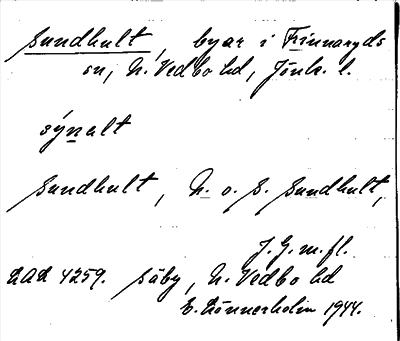 Sundhult, byar i Finnaryds
sn, N. Vedbo hd, Jönk. l.
sýnalt
Sundhult, N. o. S. Sundhult,
J. G. m. fl.
LAL 4259. Säby, N. Vedbo hd
E. Lönnerholm 1944.